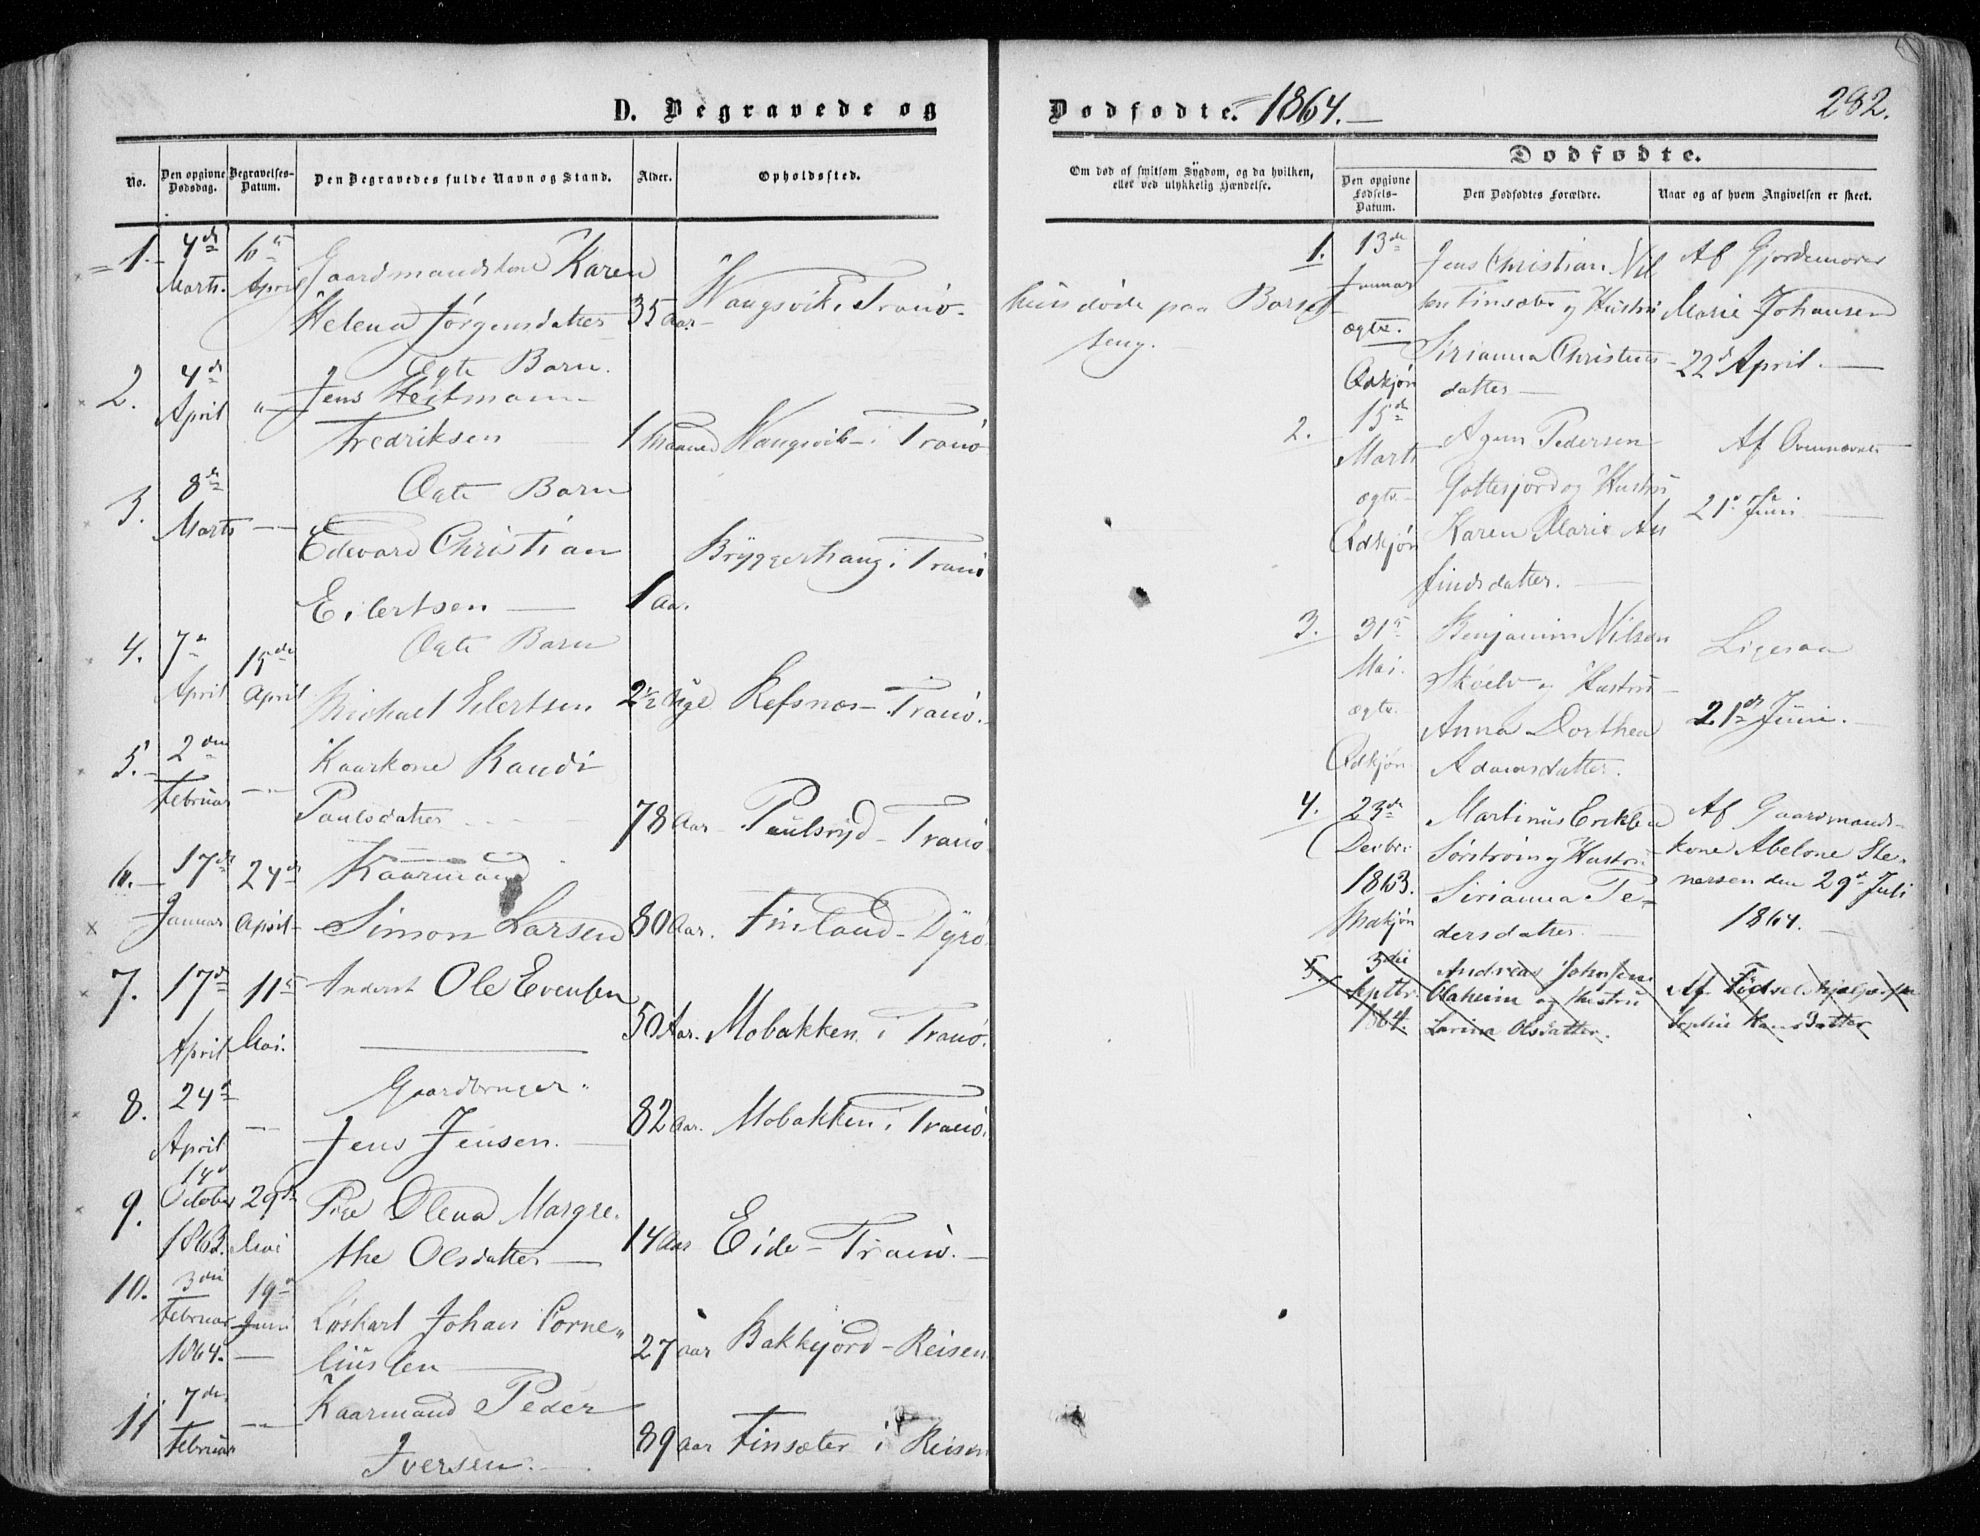 D. Begravede og
Dødfødte. 1864.
282.
No.
Den opgivne Dødsdag.
Begravelses-Datum.
Den Begravedes fulde Navn og Stand.
Alder.
Opholdssted.
Om død af smitsom Sygdom, og da hvilken, eller ved ulykkelig Hændelse.
Dødfødte.
Den opgivne Fødsels-Datum.
Den Dødfødtes Forældre.
Naar og af hvem Angivelsen er skeet.
1. 4de 6te Gaardmandskone Karen
Marts. April Helena Jørgensdatter 35 Aar Wangsvik i Tranø
hun døde paa Barsel
seng.
2. 4de Ægte Barn.
April " Jens Heitmann
Fredriksen 1 Maaned Wangsvik i Tranø
3. 8de Ægte Barn
Marts — Edevard Christian Bryggerhaug i Tranø
Eilertsen 1 Aa.
4. 7de 15de Ægte Barn
April April Michael Eilertsen 2½ Uge Refsnæs Tranø.
5. 2den Kaarkone Randi
Februar — Paulsdatter 78 Aar Paulsryd Tranø
6. 17de 24de Kaarmand
Januar April Simon Larsen 80 Aar. Finland Dyrø
7. 17de 11te Inderst Ole Evensen
April Mai. 50 Aar. Mobakken i Tranø.
8. 24de Gaardbruger
April — Jens Jensen. 82 Aar. Mobakken i Tranø.
9. 14de
October 29de Pige Olena Margre
1863. Mai the Olsdatter 14 Aar Eide Tranø.
10. 3die 19de
Februar Juni Løskarl Johan Corne
1864. liussen 27 Aar Bakkejord Reisen
11 7de Kaarmand Peder
Februar — Iversen. 89 Aar Finsæter i Reisen
1. 13de Jens Christian Nil Af Gjordemoder
Januar sen Finsæter og Hustru Marie Johansen
ægte. Sirianna Christens 22de April.
Qvdkjøn datter
2. 15de Agen Pedersen Af Ovennævnte
Marts Gottesjord og Hustru
ægte Karen Marie 21de Juni
Qvdkjøn findsdatter.
3. 31te Benjamin Nilsen Ligesaa
Mai. Skøelv og Hustru
ægte. Anna Dorthea 21de Juni.
Qvdkjøn Adamsdatter.
4. 23de Martinus Eriksen Af Gaardmands
Decbr. Sørstrøm og Hustru kone Abelone Ste
1863. Sirianna Pe nersen den 29de Juli
Mdkjøn dersdatter. 1864.
5. 3die Andreas Johnsen Af Fødselshjælpersken
Septbr. Olaheim og Hustru Sophie Hansdatter
1864. Larina Olsdatter.